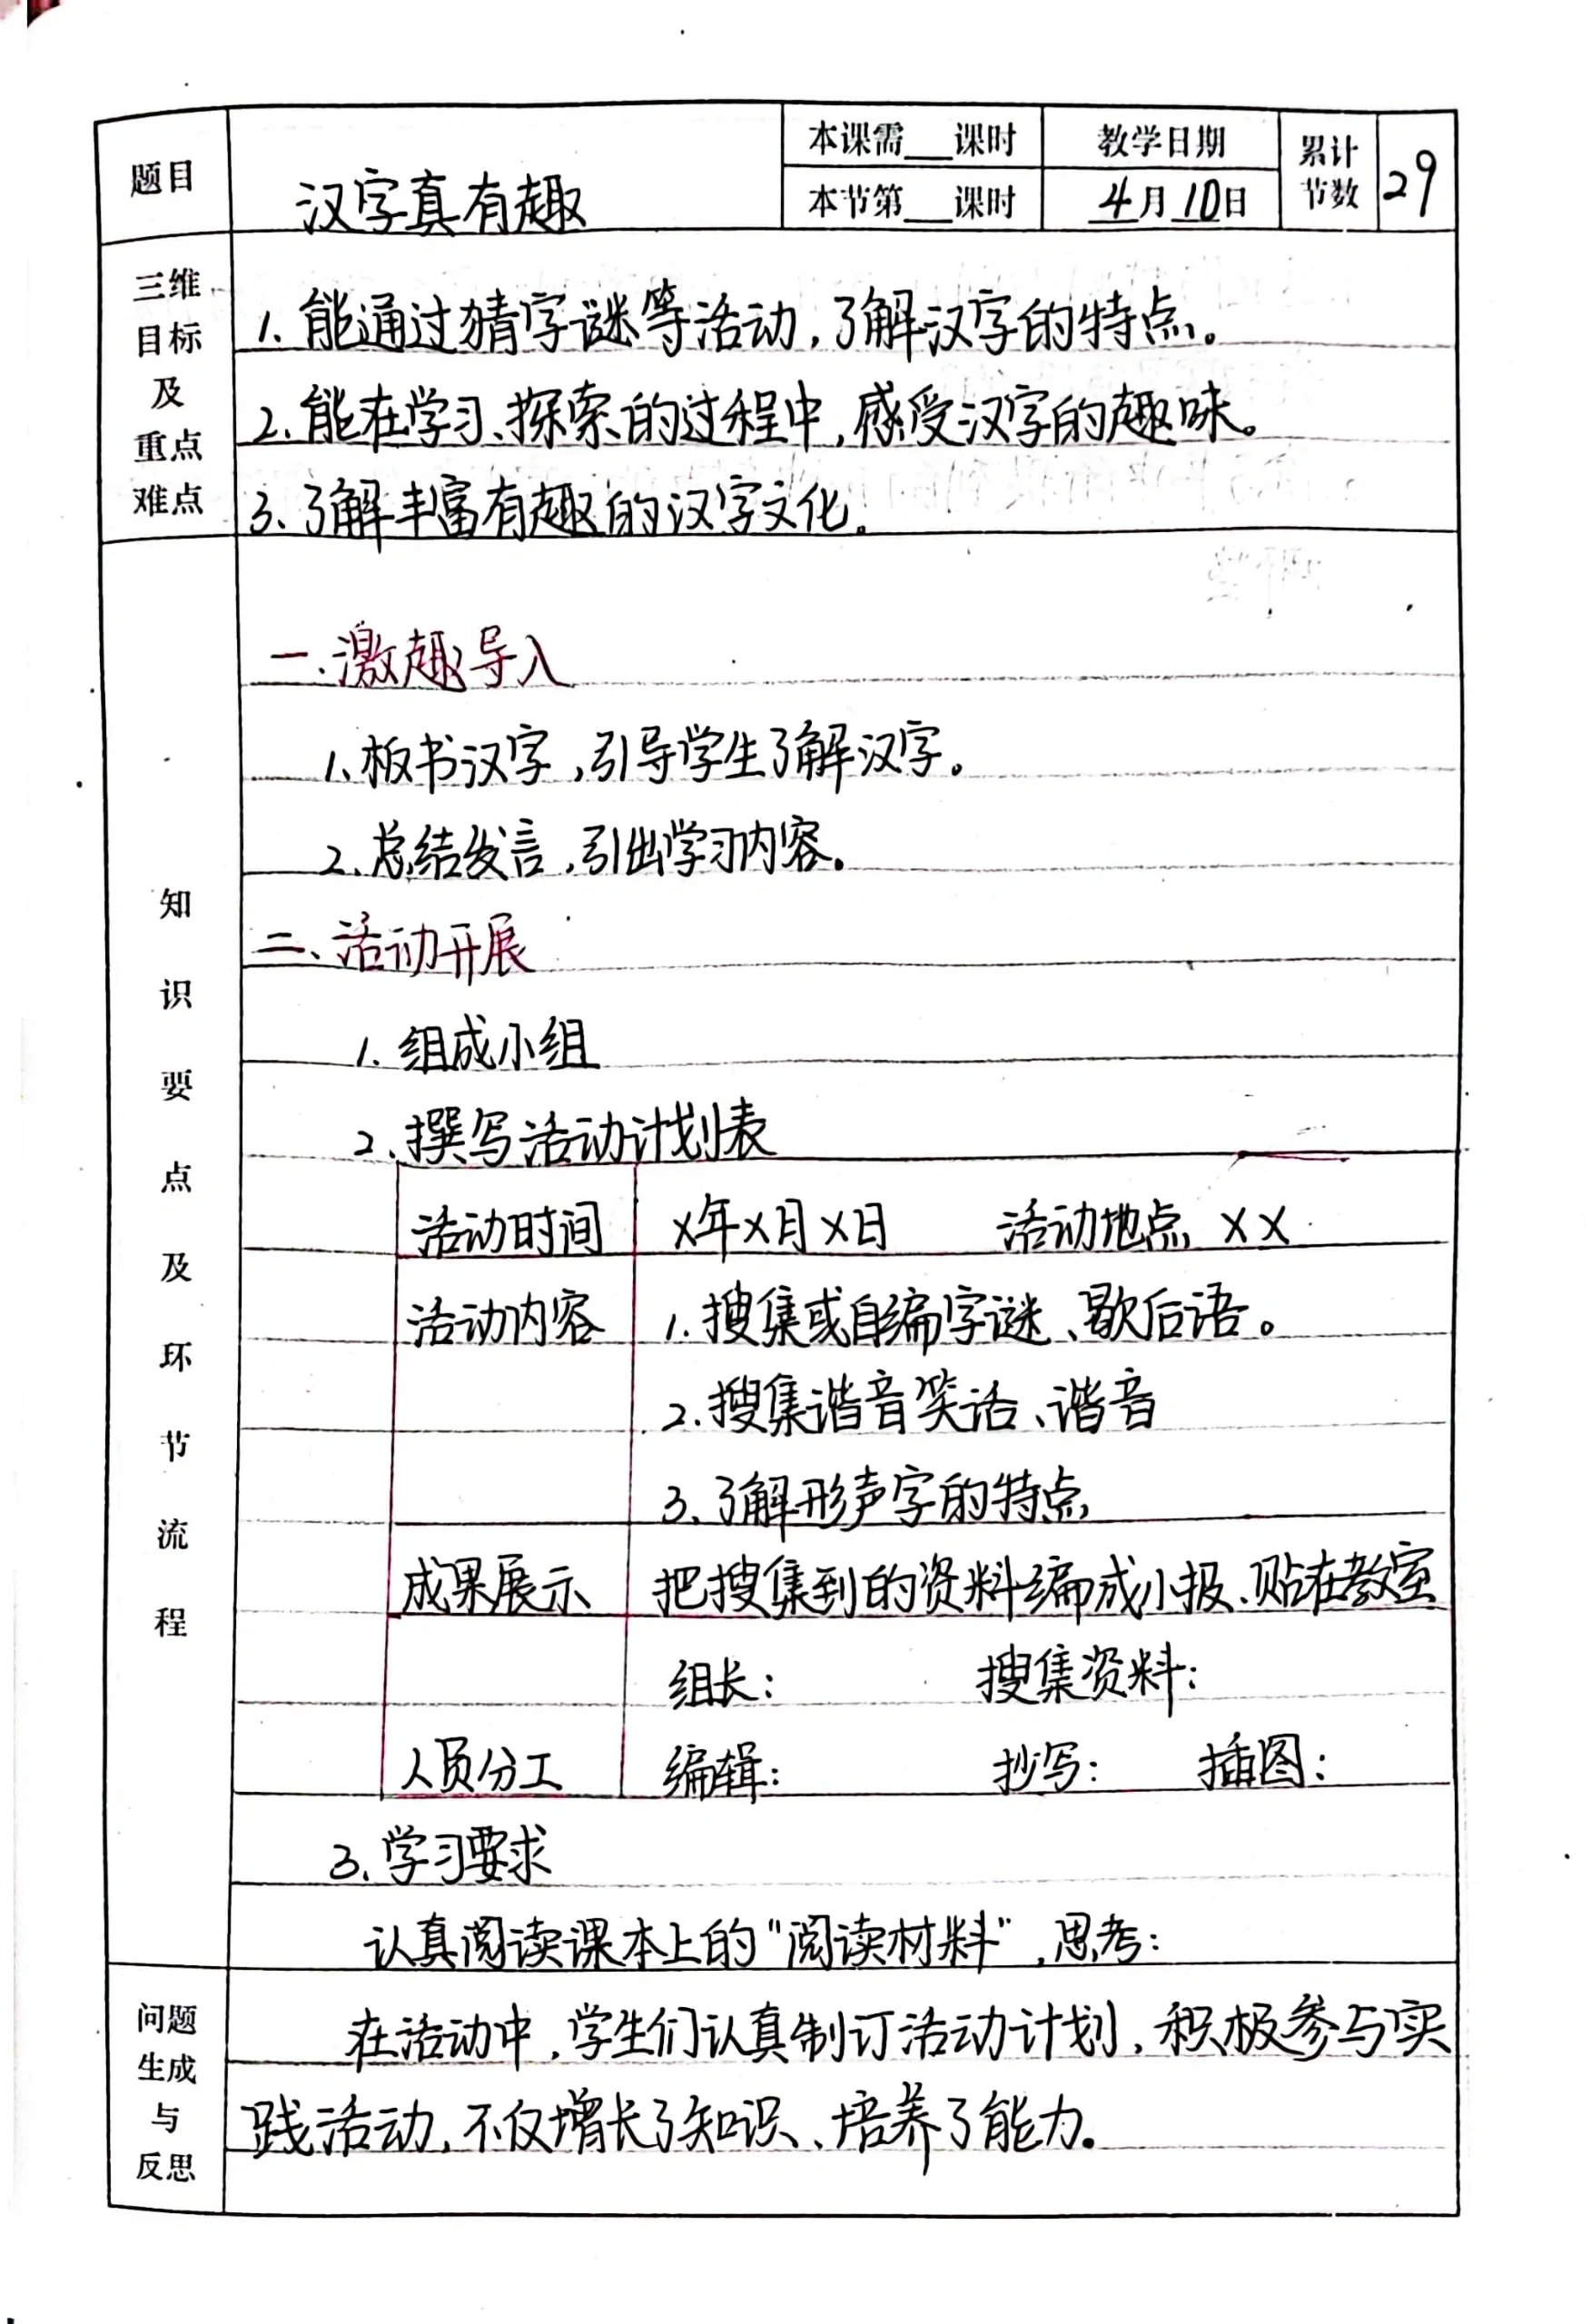 题目 汉字真有趣 本课需__课时 教学日期 累计节数 29
本节第__课时 4月10日
三维目标及重点难点
1. 能通过猜字谜等活动,了解汉字的特点。
2、能在学习、探索的过程中,感受汉字的趣味。
3、了解丰富有趣的汉字文化。
知识要点及环节流程
一、激趣导入
1、板书汉字,引导学生了解汉字。
2、总结发言,引出学习内容。
二、活动开展
1. 组成小组
2、撰写活动计划表
活动时间 X年X月X日 活动地点 XX
活动内容 1. 搜集或自编字谜、歇后语。
2. 搜集谐音笑话、谐音
3、了解形声字的特点
成果展示 把搜集到的资料编成小报、贴在教室
组长: 搜集资料:
人员分工 编辑: 抄写: 插图:
3、学习要求
认真阅读课本上的“阅读材料”,思考:
问题生成与反思
在活动中,学生们认真制订活动计划,积极参与实
践活动,不仅增长了知识、培养了能力。